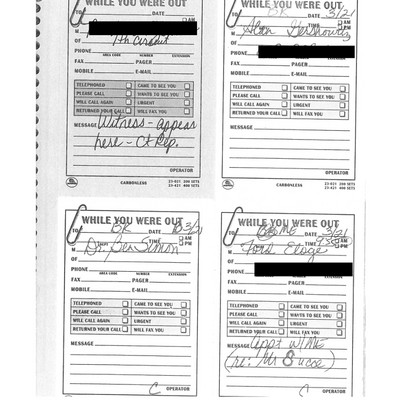 WHILE YOU WERE OUT
M
7th Circuit
OF
PHONE
AREA CODE NUMBER EXTENSION
FAX PAGER
MOBILE E-MAIL
TELEPHONED CAME TO SEE YOU
PLEASE CALL WANTS TO SEE YOU
WILL CALL AGAIN URGENT
RETURNED YOUR CALL WILL FAX YOU
MESSAGE Witness - appear
here - Ct Rep.
OPERATOR
CARBONLESS
23-021 200 SETS
23-421 400 SETS
WHILE YOU WERE OUT
TO BK DATE 3/21
TIME AM
PM
M
OF
PHONE
FAX PAGER
MOBILE E-MAIL
TELEPHONED CAME TO SEE YOU
PLEASE CALL WANTS TO SEE YOU
WILL CALL AGAIN URGENT
RETURNED YOUR CALL WILL FAX YOU
MESSAGE
OPERATOR
CARBONLESS
23-021 200 SETS
23-421 400 SETS
WHILE YOU WERE OUT
TO BK DATE 3/21
TIME AM
PM
M Dr.
OF
PHONE
AREA CODE NUMBER EXTENSION
FAX PAGER
MOBILE E-MAIL
TELEPHONED CAME TO SEE YOU
PLEASE CALL WANTS TO SEE YOU
WILL CALL AGAIN URGENT
RETURNED YOUR CALL WILL FAX YOU
MESSAGE
C OPERATOR
WHILE YOU WERE OUT
TO DATE 3/21
TIME AM
PM
M
OF
PHONE
FAX PAGER
MOBILE E-MAIL
TELEPHONED CAME TO SEE YOU
PLEASE CALL WANTS TO SEE YOU
WILL CALL AGAIN URGENT
RETURNED YOUR CALL WILL FAX YOU
MESSAGE Appt w/ME
(re:
C OPERATOR